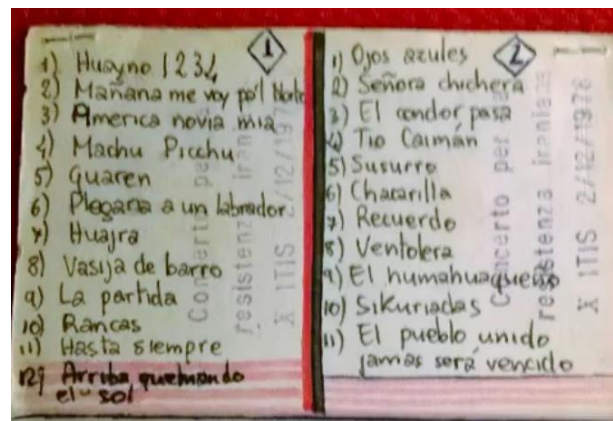 1
1) Huayno 1234
2) Mañana me voy pa'l Norte
3) America novia mia
4) Machu Picchu
5) Guaren
6) Plegaria a un labrador
7) Huajra
8) Vasija de barro
9) La partida
10) Rancas
11) Hasta siempre
12) Arriba quemando
el sol
Concerto per la
resistenza iraniana
X ITIS 2/12/1978
2
1) Ojos azules
2) Señora chichera
3) El condor pasa
4) Tio Caimán
5) Susurro
6) Chacarilla
7) Recuerdo
8) Ventolera
9) El humahuaqueño
10) Sikuriadas
11) El pueblo unido
jamas será vencido
Concerto per la
resistenza iraniana
X ITIS 2/12/1978